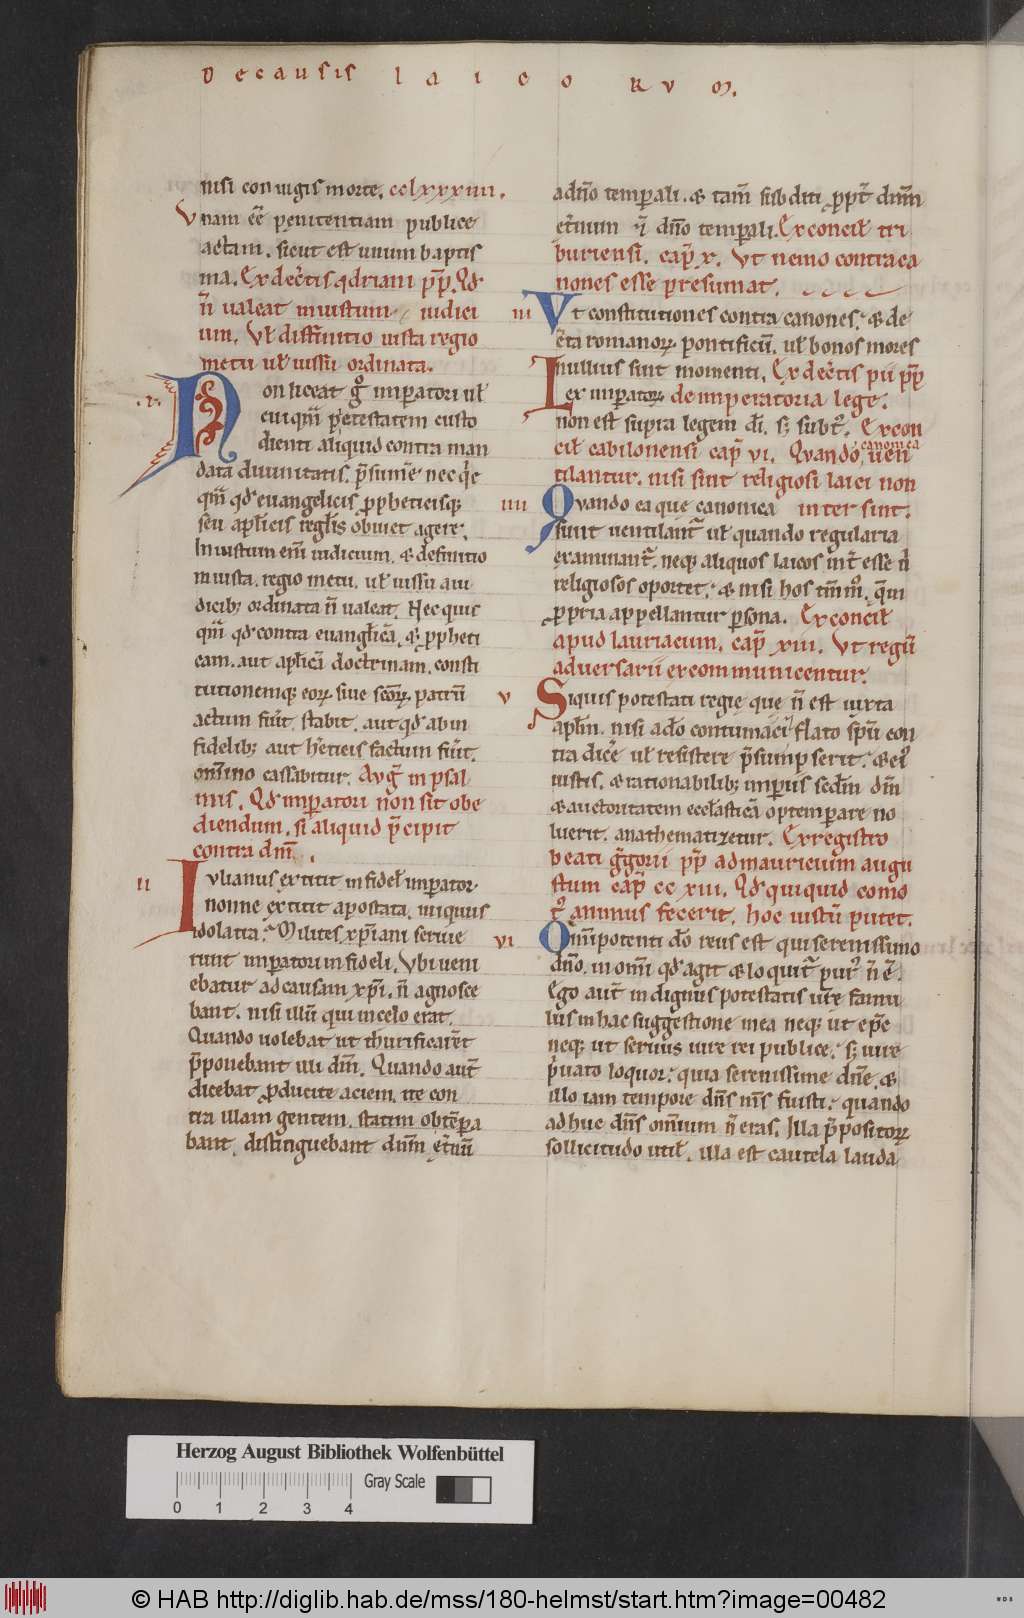 De causis laicorum.
nisi coniugis morte. cclxxxiiii.
Vnam eē penitentiam publice
actam. sicut est unum baptis
ma. Ex decͬtis adriani pp̄. Qd̄
n̄ ualeat iniustum iudici
um. Vł diffinitio iusta regio
metu uł iussu ordinata.
.i. Non liceat gͦ imꝑatori uł
cuiquā ptestatem custo
dienti aliquid contra man
data diuinitatis. p̄sumͬe nec q̄ͬe
quā qd̄ euangelicis ꝓpheticisq;
seu aplicis regłis obuiet agere.
Iniustum enī iudicium. & definitio
iniusta. regio metu. uł iussu aiu
dicib; ordinata n̄ ualeat. Nec quic
quā qd̄ contra euangłicā. & ꝓpheti
cam. aut aplicā doctrinam. consti
tutionemq; eoꝝ siue scōꝝ patrū
actum fuͬit stabit. aut qd̄ ab in
fidelib; aut hͬeticis factum fuͬit.
omnino cassabitur. Avḡ in psal
mis. Qd̄ imꝑatori non sit obe
diendum. si aliquid p̄cipit
contra dn̄m.
ii Iulianus extitit infideł imꝑator
nonne extitit apostata. iniquus
idolatra. Milites xp̄iani seruie
runt imꝑatori infideli. Vbi ueni
ebatur ad causam xp̄i. n̄ agnosce
bant. nisi illū qui in celo erat.
Quando uolebat ut thurificarēt
p̄ponebant illi dm̄. Quando aut̄
dicebat ꝓducite aciem. ite con
tra illam gentem. statim obtēꝑa
bant. distinguebant dnm̄ etͬnū
a dn̄o temꝑali. & tam̄ subditi ꝓpt̄ dnm̄
etͬnum & dn̄o temꝑali. Ex concił tri
buriensi. cap̄ x. Vt nemo contra ca
nones esse presumat.
iii Vt constitutiones contra canones. & de
cͬeta romanoꝝ pontificū. uł bonos mores
nullius sint momenti. Ex decͬtis pii pp̄
Lex imꝑatoꝝ de imperiatoria lege.
non est supra legem di. s; subtͬ. Ex con
cił cabilonensi cap̄ vi. Quando canonica uen
tilantur. nisi sint religiosi laici non
iiii Quando ea que canonica intersint.
sunt uentilant̄ uł quando regularia
examinant̄. neq; aliquos laicos intͬ esse nͥ
religiosos oportet. & nisi hos tm̄mͦ. qui
ꝓpria appellantur ꝑsona. Ex concił
apud lauriacum. cap̄ xiii. Vt regū
aduersarii excommunicentur.
v Siquis potestati regie que n̄ est iuxta
aplm̄. nisi a dō contumaci iflato spū con
tra dicͬe uł resistere p̄sumpserit. & eiͬ
iustis. & rationabilib; imꝑiis scdm̄ dm̄
& auctoritatem eccłasticā optemꝑare no
luerit. anathematizetur. Ex registro
beati ḡgorii pp̄ ad mauricium augu
stum cap̄ cc xiii. Qd̄ quiquid como
tͬ animus fecerit. hoc iustū putet.
vi Omīpotenti dō reus est qui serenissimo
dn̄o. in omī qd̄ agit & loquit̄ purͬ n̄ ē.
Ego aut̄ indignus potestatis uͬre famu
lus in hac suggestione mea neq; ut ep̄c
neq; ut seruus iure rei publice. s; iure
pͥuato loquor. quia serenissime dn̄e. &
illo iam tempore dn̄s ms̄ fuisti. quando
adhuc dn̄s omīum n̄ eras. Illa p̄positoꝝ
sollicitudo utił. illa est cautela lauda
Herzog August Bibliothek Wolfenbüttel
0 1 2 3 4
Gray Scale
© HAB http://diglib.hab.de/mss/180-helmst/start.htm?image=00482